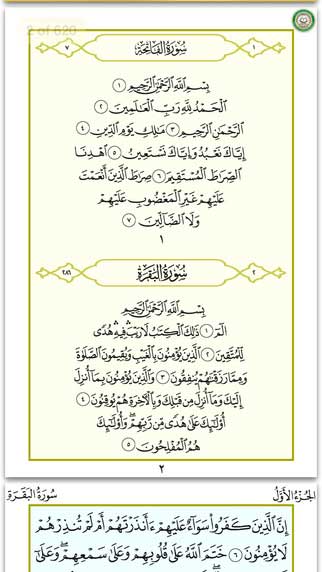 2 of 620
٧ سُورَةُ الْفَاتِحَةِ ١
بِسْمِ اللَّهِ الرَّحْمَٰنِ الرَّحِيمِ ١
الْحَمْدُ لِلَّهِ رَبِّ الْعَالَمِينَ ٢
الرَّحْمَٰنِ الرَّحِيمِ ٣ مَالِكِ يَوْمِ الدِّينِ ٤
إِيَّاكَ نَعْبُدُ وَإِيَّاكَ نَسْتَعِينُ ٥ اهْدِنَا
الصِّرَاطَ الْمُسْتَقِيمَ ٦ صِرَاطَ الَّذِينَ أَنْعَمْتَ
عَلَيْهِمْ غَيْرِ الْمَغْضُوبِ عَلَيْهِمْ
وَلَا الضَّالِّينَ ٧
١
٢٨٦ سُورَةُ الْبَقَرَةِ ٢
بِسْمِ اللَّهِ الرَّحْمَٰنِ الرَّحِيمِ
الٓمٓ ١ ذَٰلِكَ الْكِتَابُ لَا رَيْبَ ۛ فِيهِ ۛ هُدًى
لِلْمُتَّقِينَ ٢ الَّذِينَ يُؤْمِنُونَ بِالْغَيْبِ وَيُقِيمُونَ الصَّلَاةَ
وَمِمَّا رَزَقْنَاهُمْ يُنْفِقُونَ ٣ وَالَّذِينَ يُؤْمِنُونَ بِمَا أُنْزِلَ
إِلَيْكَ وَمَا أُنْزِلَ مِنْ قَبْلِكَ وَبِالْآخِرَةِ هُمْ يُوقِنُونَ ٤
أُولَٰئِكَ عَلَىٰ هُدًى مِنْ رَبِّهِمْ ۖ وَأُولَٰئِكَ
هُمُ الْمُفْلِحُونَ ٥
٢
الجُزْءُ الأَوَّلُ سُورَةُ البَقَرَةِ
إِنَّ الَّذِينَ كَفَرُوا سَوَاءٌ عَلَيْهِمْ ءَأَنْذَرْتَهُمْ أَمْ لَمْ تُنْذِرْهُمْ
لَا يُؤْمِنُونَ ٦ خَتَمَ اللَّهُ عَلَىٰ قُلُوبِهِمْ وَعَلَىٰ سَمْعِهِمْ ۖ وَعَلَىٰ